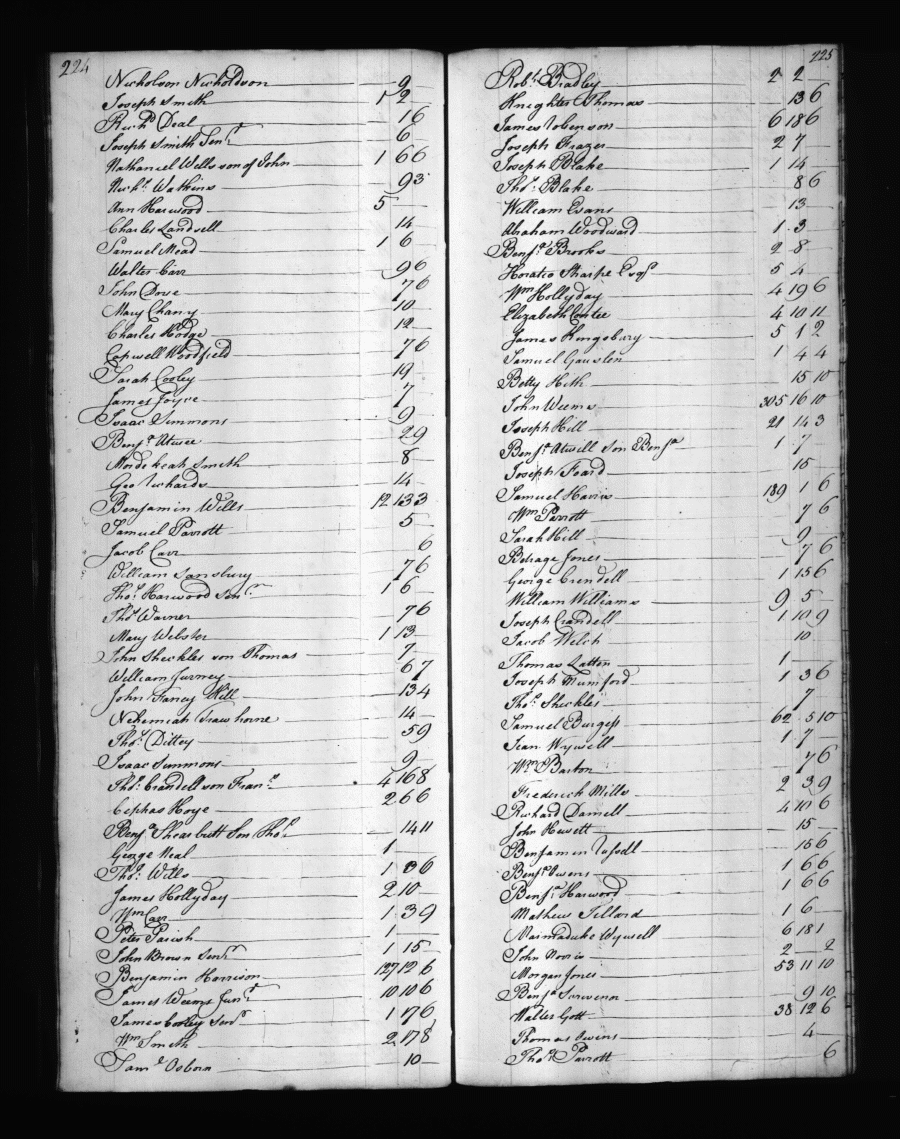 224
Nicholson Nicholdson — 9 —
Joseph Smith — 1 2 —
Rich.d Deal — 16
Joseph Smith Sen.r — 6 —
Nathaniel Wells son of John — 1 6 6
Nich.s Watkins — 9 3
Ann Harwood — 5 — —
Charles Landsell — 14 —
Samuel Mead — 1 6 —
Walter Carr — 9 6
John Dove — 7 6
Mary Chany — 10 —
Charles Hodge — 12 —
Copwell Woodfield — 7 6
Sarah Cooley — 19 —
James Joyce — 7 —
Isaac Simmons — 9 —
Benj.a Atwee — 2 9
Mordekeah Smith — 8 —
Geo Richards — 14 —
Benjamin Wells — 12 13 3
Samuel Parrott — 5 —
Jacob Carr — 6
William Sansbury — 7 6
Tho.s Harwood Sen.r — 1 6 —
Tho.s Warner — 7 6
Mary Webster — 1 13 —
John Sheckles son Thomas — 7 —
William Gurney — 6 7
John Fancy Hill — 13 4
Nehemiah Trawhorne — 14 —
Tho.s Dittey — 5 9
Isaac Simmons — 9 —
Tho.s Crandell son Fran.s — 4 16 8
Cephas Hoye — 2 6 6
Benj.a Shearbutt Son Tho.s — 14 11
George Neal — 1 — —
Tho.s Wells — 1 3 6
James Hollyday — 2 10 —
Wm Carr — 1 3 9
Peter Parish — 1 — —
John Brown Sen.r — 1 15 —
Benjamin Harrison — 127 12 6
James Weems Jun.r — 10 10 6
James Cooley Sen.r — 1 7 6
Wm Smith — 2 17 8
Sam.l Osborn — 10 —
225
Rob.t Bradley — 2 2 —
Knighter Thomas — 13 6
James Roberson — 6 18 6
Joseph Frazer — 2 7 —
Joseph Blake — 1 14 —
Tho.s Blake — 8 6
William Evans — 13 —
Abraham Woodward — 1 3
Benj.a Brooks — 2 8
Horatio Sharpe Esq.r — 5 4
Wm Hollyday — 4 19 6
Elizabeth Contee — 4 10 11
James Kingsbury — 5 1 2
Samuel Gauslen — 1 4 4
Betty Hith — 15 10
John Weems — 305 16 10
Joseph Hill — 21 14 3
Benj.a Atwell Son Benj.a — 1 7
Joseph Foard — 15 —
Samuel Harris — 189 1 6
Wm Parrott — 7 6
Sarah Hill — 9
Betrage Jones — 7 6
George Crendell — 1 15 6
William Williams — 9 5 —
Joseph Crandell — 1 10 9
Jacob Welch — 10
Thomas Latton — 1 —
Joseph Mumford — 1 3 6
Tho.s Sheckles — 7
Samuel Burgess — 62 5 10
Jean Wywell — 1 7 —
Wm Barton — 7 6
Frederick Mills — 2 3 9
Richard Darnell — 4 10 6
John Hewett — 15 —
Benjamin — 15 6
Benj.a Owens — 1 6 6
Benj.a Harwood — 1 6 6
Mathew Tillard — 1 6 —
Marmaduke Wywell — 6 18 1
John Norris — 2 — 2
Morgan Jones — 53 11 10
Benj.a Scrivenor — 9 10
Walter Gott — 38 12 6
Thomas Owens — 4
Tho.s Parrott — 6